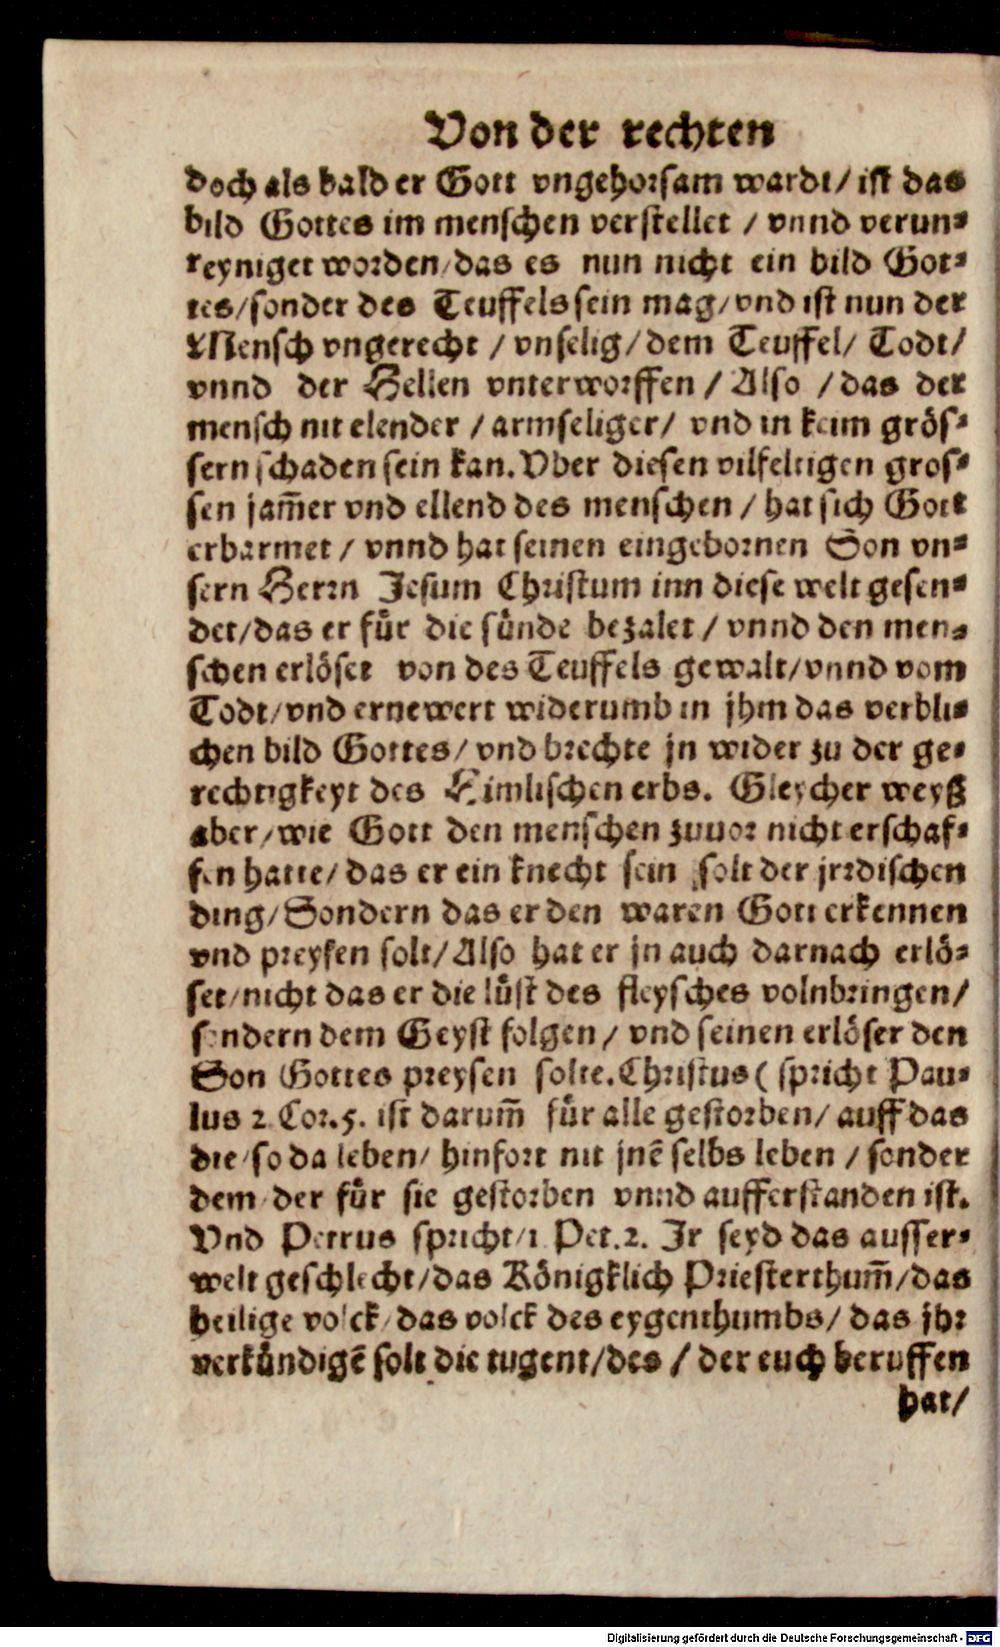 Von der rechten
doch als bald er Gott vngehorsam wardt/ ist das
bild Gottes im menschen verstellet / vnnd verun-
reyniget worden/das es nun nicht ein bild Got-
tes/sonder des Teuffels sein mag/vnd ist nun der
Mensch vngerecht / vnselig/dem Teuffel/ Todt/
vnnd der Hellen vnterworffen / Also /das der
mensch nit elender /armseliger/ vnd in keim grös-
sern schaden sein kan. Vber diesen vilfeltigen gros-
sen jam̃er vnd ellend des menschen / hat sich Gott
erbarmet / vnnd hat seinen eingebornen Son vn-
sern Herrn Jesum Christum inn diese welt gesen-
det/das er fůr die sůnde bezalet / vnnd den men-
schen erlöset von des Teuffels gewalt/vnnd vom
Todt/vnd ernewert widerumb in jhm das verbli-
chen bild Gottes/ vnd brechte jn wider zu der ge-
rechtigkeyt des Himlischen erbs. Gleycher weyß
aber/wie Gott den menschen zuuor nicht erschaf-
fen hatte/ das er ein knecht sein solt der jrrdischen
ding/Sondern das er den waren Gott erkennen
vnd preysen solt/Also hat er jn auch darnach erlö-
set/nicht das er die lůst des fleysches volnbringen/
sondern dem Geyst folgen / vnd seinen erlöser den
Son Gottes preysen solte.Christus ( spricht Pau-
lus 2 Cor.5. ist darum̃ fůr alle gestorben/ auff das
die/so da leben/ hinfort nit jnẽ selbs leben / sonder
dem/der fůr sie gestorben vnnd aufferstanden ist.
Vnd Petrus spricht/1 Pet.2. Ir seyd das ausser-
welt geschlecht/das Königklich Priesterthum̃/das
heilige volck/das volck des eygenthumbs/ das jhr
verkůndigẽ solt die tugent/des / der euch beruffen
hat/
Digitalisierung gefördert durch die Deutsche Forschungsgemeinschaft - DFG